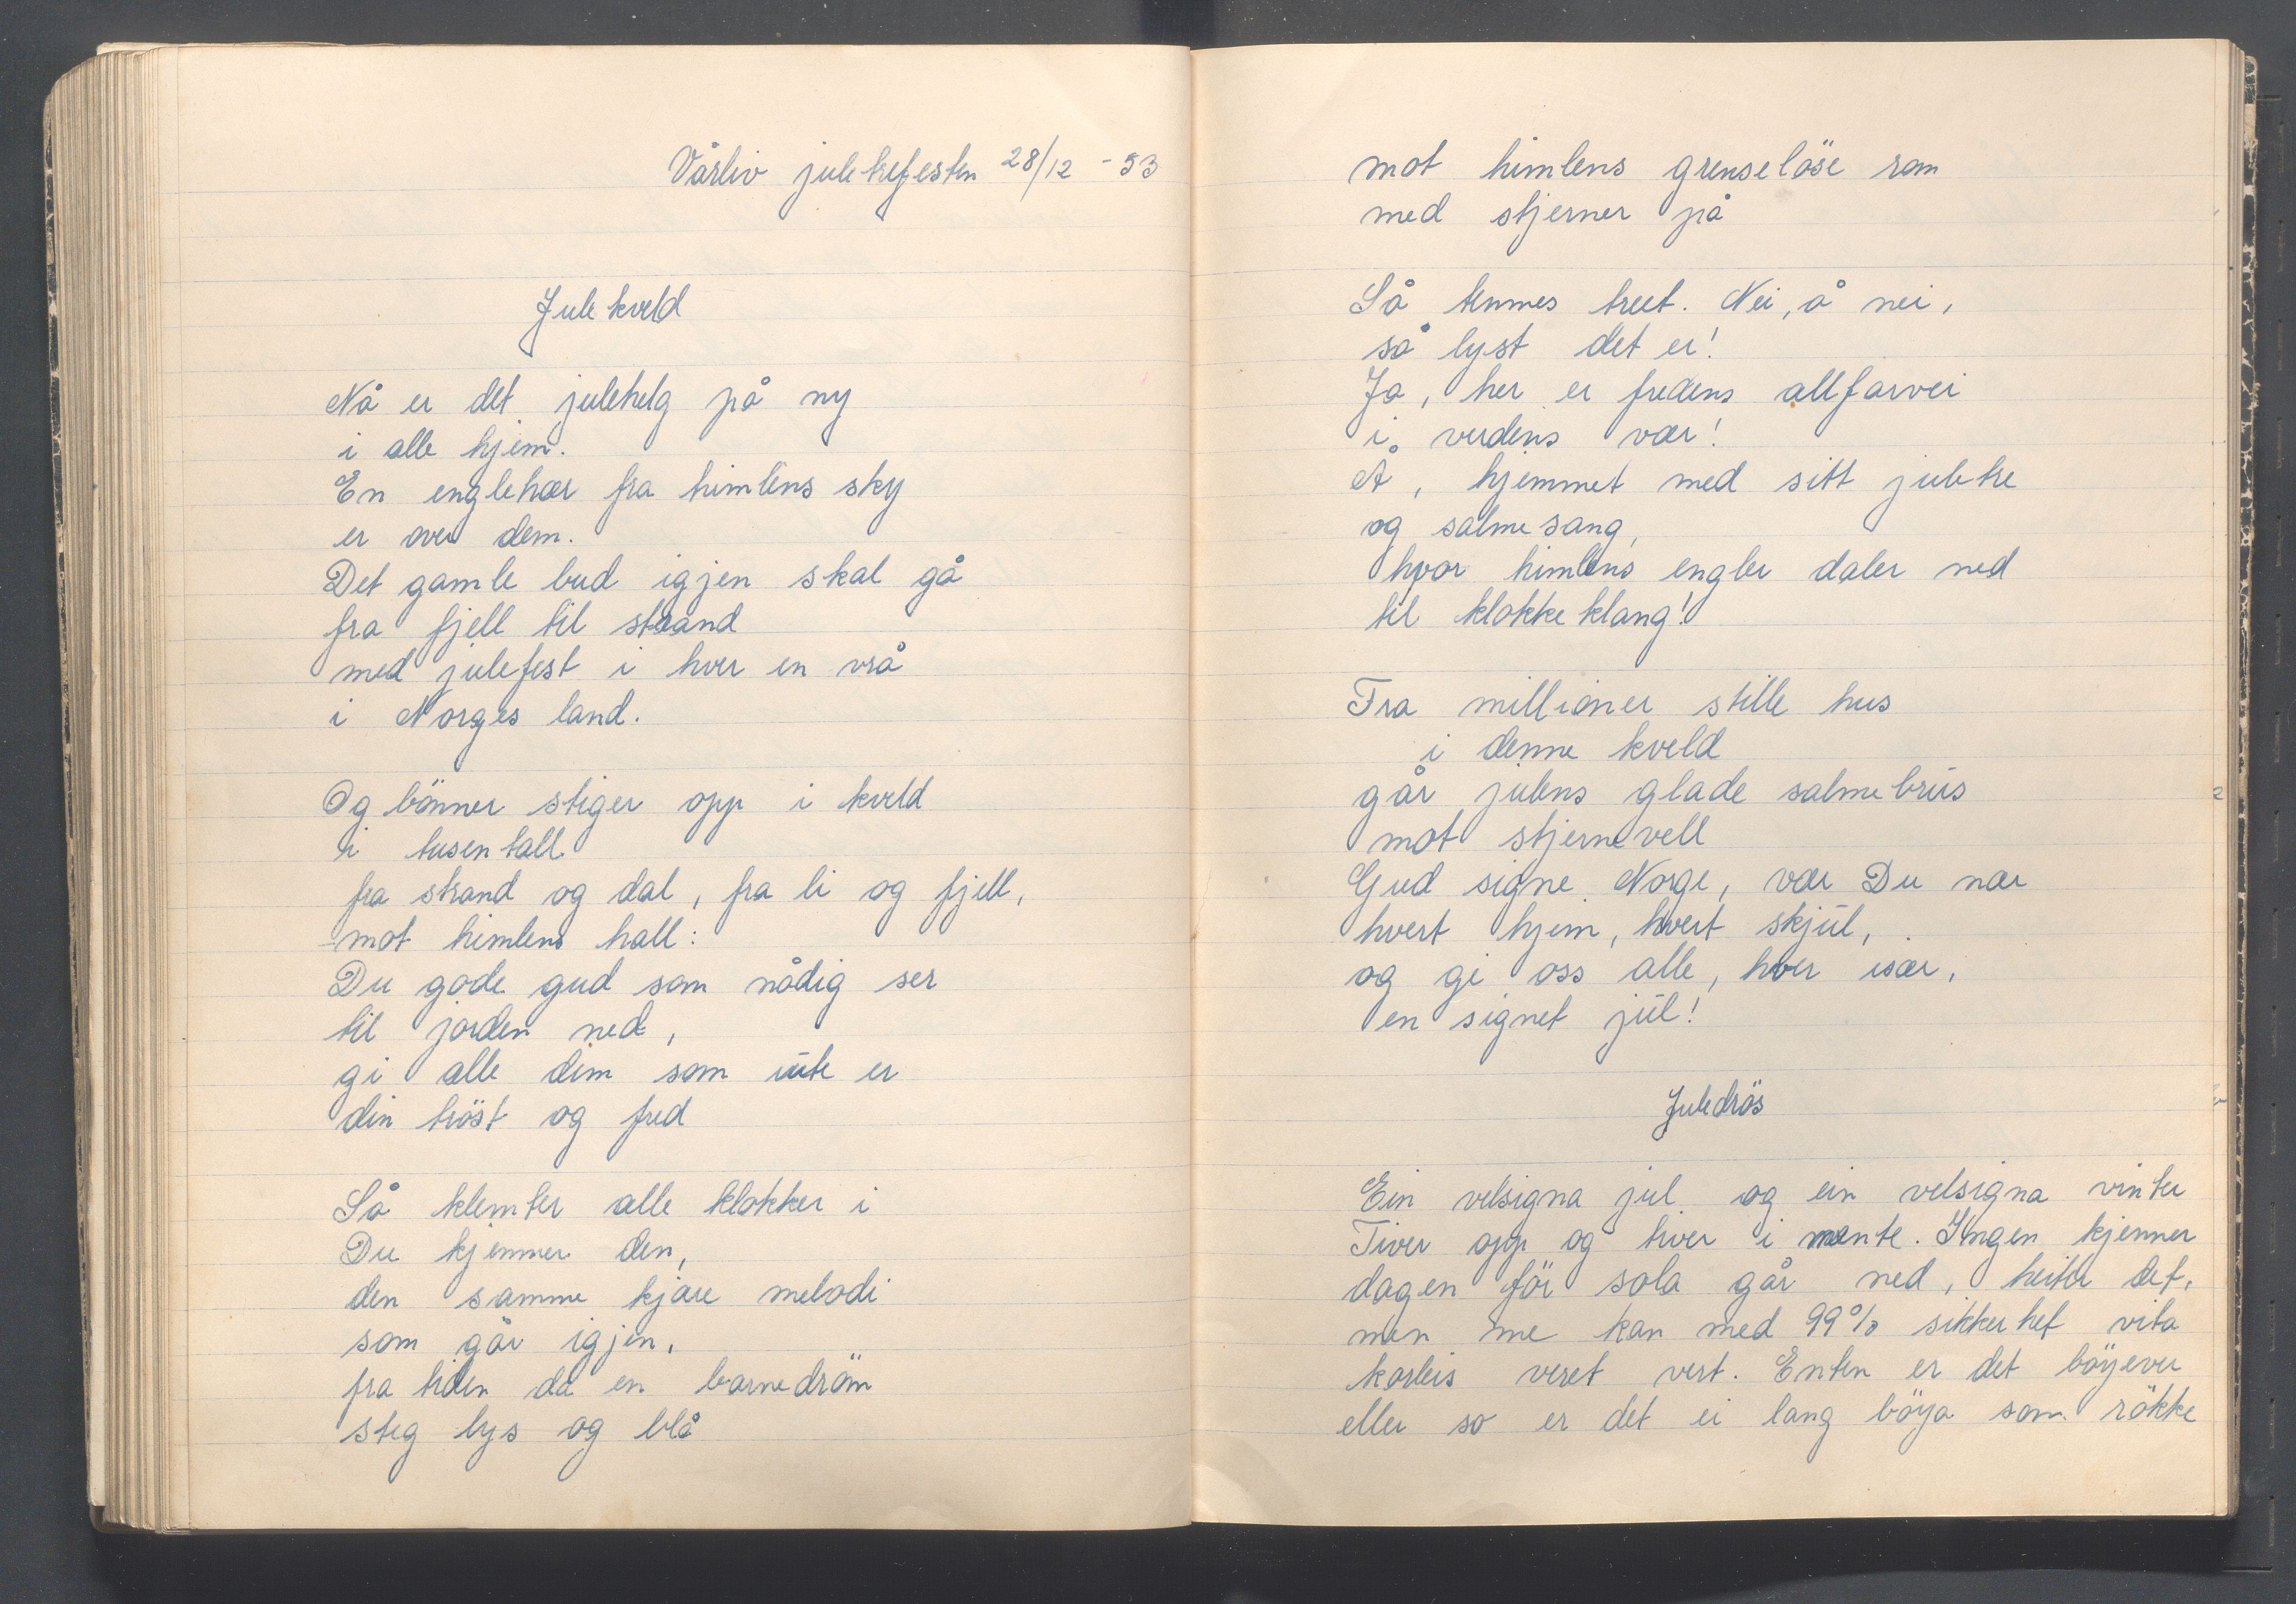 Vårliv juletrefesten 28/12 - 53
Julekveld
Nå er det julehelg på ny
i alle hjem.
En englehær fra himlens sky
er over dem.
Det gamle bud igjen skal gå
fra fjell til strand
med julefest i hver en vrå
i Norges land.
Og bönner stiger opp i kveld
i tusentall
fra strand og dal, fra li og fjell,
mot himlens hall:
Du gode gud som nådig ser
til jorden ned,
gi alle dim som ute er
din tröst og fred
Så klemter alle klokker i
Du kjenner den,
den samme kjære melodi
som går igjen,
fra tiden da en barnedröm
steg lys og blå
mot himlens grenselöse rom
med stjerner på
Så tennes treet. Nei, å nei,
så lyst det er!
Ja, her er fredens allfarvei
i verdens vær!
Å, hjemmet med sitt juletre
og salmesang,
hvor himlens engler daler ned
til klokkeklang!
Fra millioner stille hus
i denne kveld
går julens glade salmebrus
mot stjernevell
Gud signe Norge, vær Du nær
hvert hjem, hvert skjul,
og gi oss alle, hver især,
en signet jul!
Juledrös
Ein velsigna jul og ein velsigna vinter
Tiver opp og tiver i mente. Ingen kjenner
dagen för sola går ned, heiter det,
men me kan med 99% sikkerhet vita
korleis veret vert. Enten er det böyever
eller so er det ei lang böya som rökke